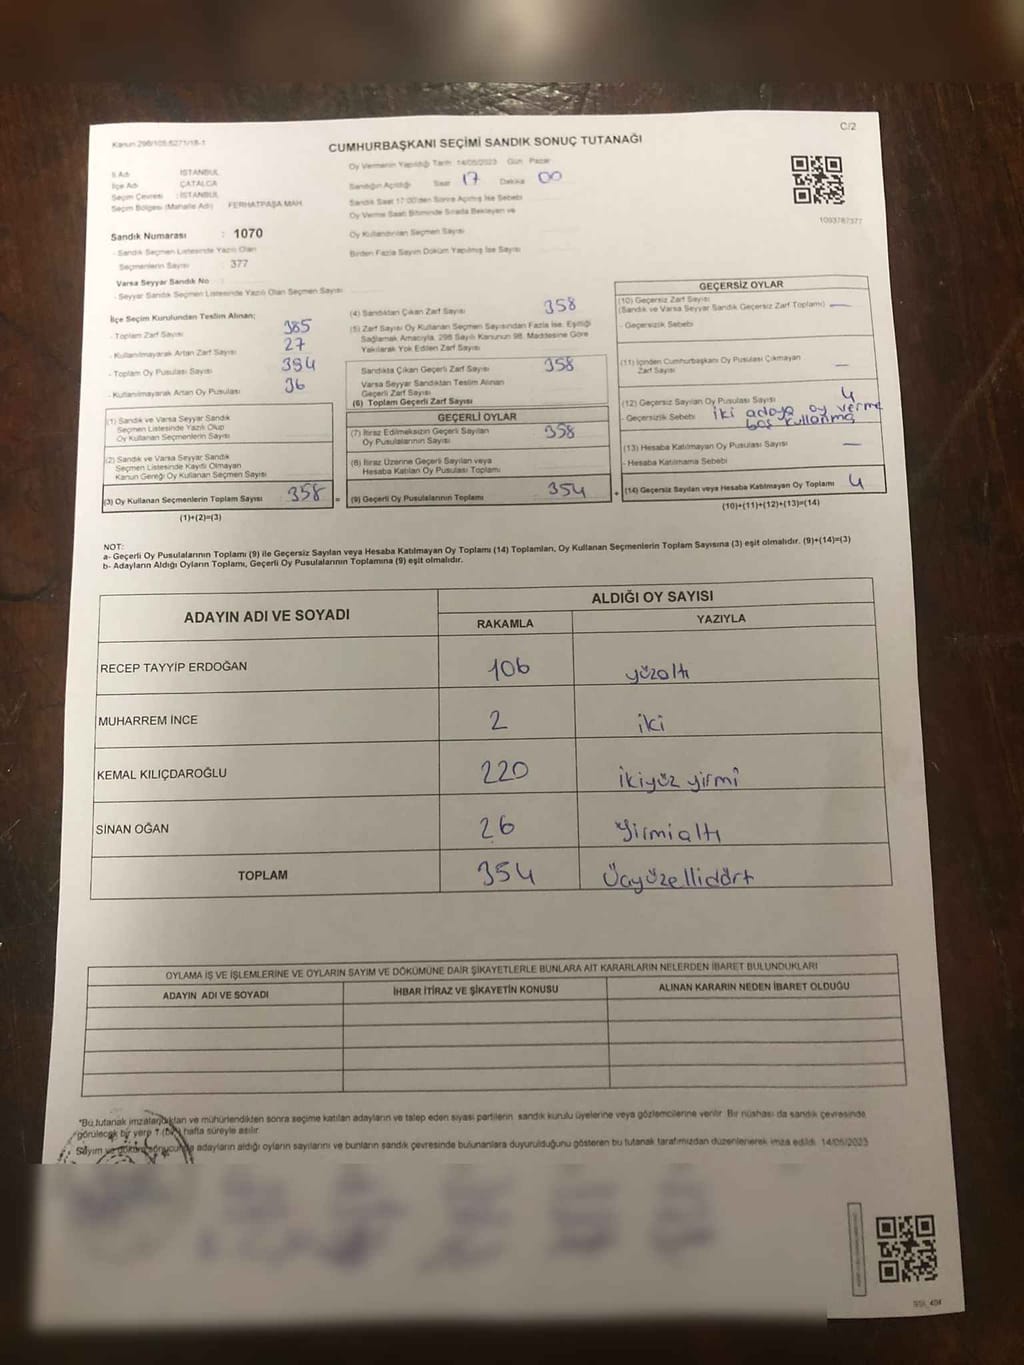 C/2
Kanun 298/105,6271/18-1
CUMHURBAŞKANI SEÇİMİ SANDIK SONUÇ TUTANAĞI
İl Adı : İSTANBUL
İlçe Adı : ÇATALCA
Seçim Çevresi : İSTANBUL
Seçim Bölgesi (Mahalle Adı) : FERHATPAŞA MAH.
Oy Vermenin Yapıldığı Tarih 14/05/2023 Gün Pazar
Sandığın Açıldığı Saat 17 Dakika 00
Sandık Saat 17:00'den Sonra Açılmış İse Sebebi
Oy Verme Saati Bitiminde Sırada Bekleyen ve
Oy Kullandırılan Seçmen Sayısı
Birden Fazla Sayım Döküm Yapılmış İse Sayısı
1093787377
Sandık Numarası : 1070
- Sandık Seçmen Listesinde Yazılı Olan
Seçmenlerin Sayısı : 377
Varsa Seyyar Sandık No
- Seyyar Sandık Seçmen Listesinde Yazılı Olan Seçmen Sayısı
İlçe Seçim Kurulundan Teslim Alınan;
- Toplam Zarf Sayısı 385
- Kullanılmayarak Artan Zarf Sayısı 27
- Toplam Oy Pusulası Sayısı 394
- Kullanılmayarak Artan Oy Pusulası 36
(1) Sandık ve Varsa Seyyar Sandık
Seçmen Listesinde Yazılı Olup
Oy Kullanan Seçmenlerin Sayısı
(2) Sandık ve Varsa Seyyar Sandık
Seçmen Listesinde Kayıtlı Olmayan
Kanun Gereği Oy Kullanan Seçmen Sayısı
(3) Oy Kullanan Seçmenlerin Toplam Sayısı 358 =
(1)+(2)=(3)
(4) Sandıktan Çıkan Zarf Sayısı 358
(5) Zarf Sayısı Oy Kullanan Seçmen Sayısından Fazla İse, Eşitliği
Sağlamak Amacıyla, 298 Sayılı Kanunun 98. Maddesine Göre
Yakılarak Yok Edilen Zarf Sayısı
Sandıkta Çıkan Geçerli Zarf Sayısı 358
Varsa Seyyar Sandıktan Teslim Alınan
Geçerli Zarf Sayısı
(6) Toplam Geçerli Zarf Sayısı
GEÇERLİ OYLAR
(7) İtiraz Edilmeksizin Geçerli Sayılan
Oy Pusulalarının Sayısı 358
(8) İtiraz Üzerine Geçerli Sayılan veya
Hesaba Katılan Oy Pusulası Toplamı
(9) Geçerli Oy Pusulalarının Toplamı 354 +
GEÇERSİZ OYLAR
(10) Geçersiz Zarf Sayısı
(Sandık ve Varsa Seyyar Sandık Geçersiz Zarf Toplamı) —
- Geçersizlik Sebebi
(11) İçinden Cumhurbaşkanı Oy Pusulası Çıkmayan
Zarf Sayısı —
(12) Geçersiz Sayılan Oy Pusulası Sayısı 4
- Geçersizlik Sebebi iki adaya oy verme
boş kullanma
(13) Hesaba Katılmayan Oy Pusulası Sayısı —
- Hesaba Katılmama Sebebi
(14) Geçersiz Sayılan veya Hesaba Katılmayan Oy Toplamı 4
(10)+(11)+(12)+(13)=(14)
NOT:
a- Geçerli Oy Pusulalarının Toplamı (9) ile Geçersiz Sayılan veya Hesaba Katılmayan Oy Toplamı (14) Toplamları, Oy Kullanan Seçmenlerin Toplam Sayısına (3) eşit olmalıdır. (9)+(14)=(3)
b- Adayların Aldığı Oyların Toplamı, Geçerli Oy Pusulalarının Toplamına (9) eşit olmalıdır.
ADAYIN ADI VE SOYADI ALDIĞI OY SAYISI
RAKAMLA YAZIYLA
RECEP TAYYİP ERDOĞAN 106 yüzaltı
MUHARREM İNCE 2 iki
KEMAL KILIÇDAROĞLU 220 ikiyüz yirmi
SİNAN OĞAN 26 Yirmialtı
TOPLAM 354 Üçyüzellidört
OYLAMA İŞ VE İŞLEMLERİNE VE OYLARIN SAYIM VE DÖKÜMÜNE DAİR ŞİKAYETLERLE BUNLARA AİT KARARLARIN NELERDEN İBARET BULUNDUKLARI
ADAYIN ADI VE SOYADI İHBAR İTİRAZ VE ŞİKAYETİN KONUSU ALINAN KARARIN NEDEN İBARET OLDUĞU
*Bu tutanak imzalandıktan ve mühürlendikten sonra seçime katılan adayların ve talep eden siyasi partilerin sandık kurulu üyelerine veya gözlemcilerine verilir. Bir nüshası da sandık çevresinde
görülecek bir yere 1 (bir) hafta süreyle asılır.
Sayım ve döküm sonucunda adayların aldığı oyların sayılarını ve bunların sandık çevresinde bulunanlara duyurulduğunu gösteren bu tutanak tarafımızdan düzenlenerek imza edildi. 14/05/2023